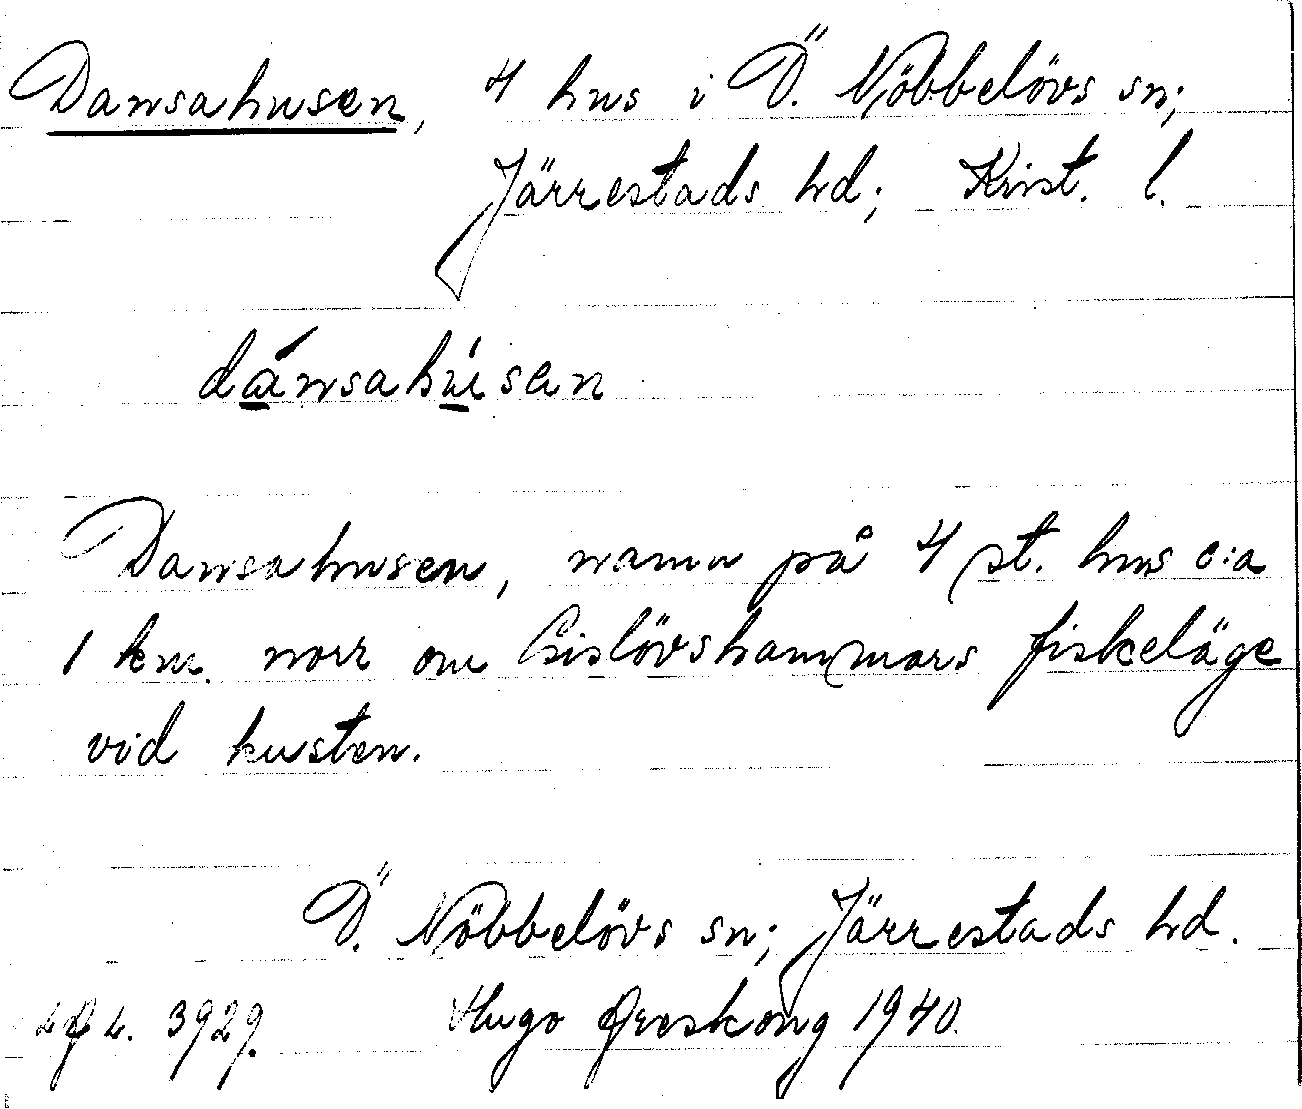 Dansahusen, 4 hus i Ö. Nöbbelövs sn;
Järrestads hd; Krist. l.
dánsahúsan
Dansahusen, namn på 4 st. hus c:a
1 km. norr om Gislövshammars fiskeläge
vid kusten.
Ö. Nöbbelövs sn; Järrestads hd.
3929. Hugo 1940.